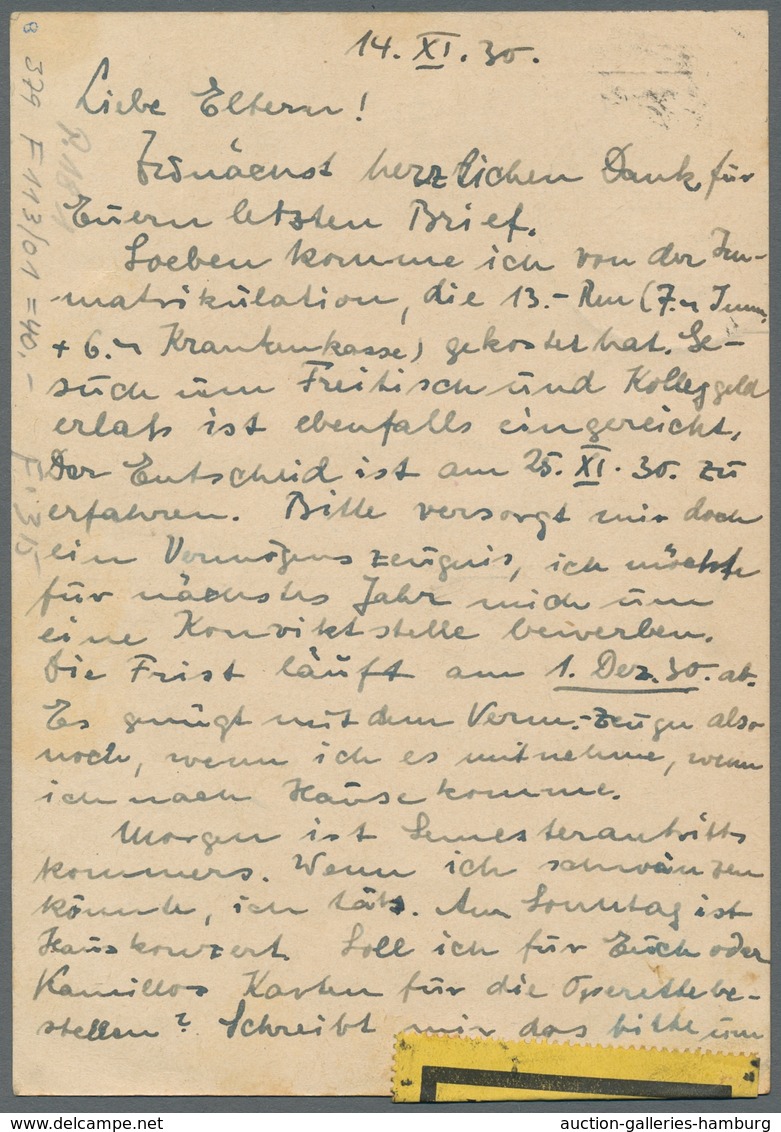 14. XI. 30.
Liebe Eltern!
Zunächst herzlichen Dank für
Euern letzten Brief.
Soeben komme ich von der Im-
matrikulation, die 13.- Rm (7.- Imm.
+ 6.- Krankenkasse) gekostet hat. Ge-
such um Freitisch und Kolleggeld
erlaß ist ebenfalls eingereicht,
Der Entscheid ist am 25. XI. 30. zu
erfahren. Bitte versorgt mir doch
ein Vermögenszeugnis, ich möchte
für nächstes Jahr mich um
eine Konviktstelle bewerben.
Die Frist läuft am 1. Dez. 30. ab.
Es genügt mit dem Verm.-Zeugn also
noch, wenn ich es mitnehme, wenn
ich nach Hause komme.
Morgen ist Semesterantritts
kommers. Wenn ich schwänzen
könnte, ich täts. Am Sonntag ist
Hauskonzert. Soll ich für Euch oder
Kamillos Karten für die Operette be-
stellen? Schreibt mir das bitte um
B 379 F113/01 =40,-
F.315
auction-galleries-hamburg